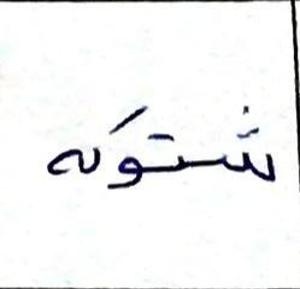 شتوكه